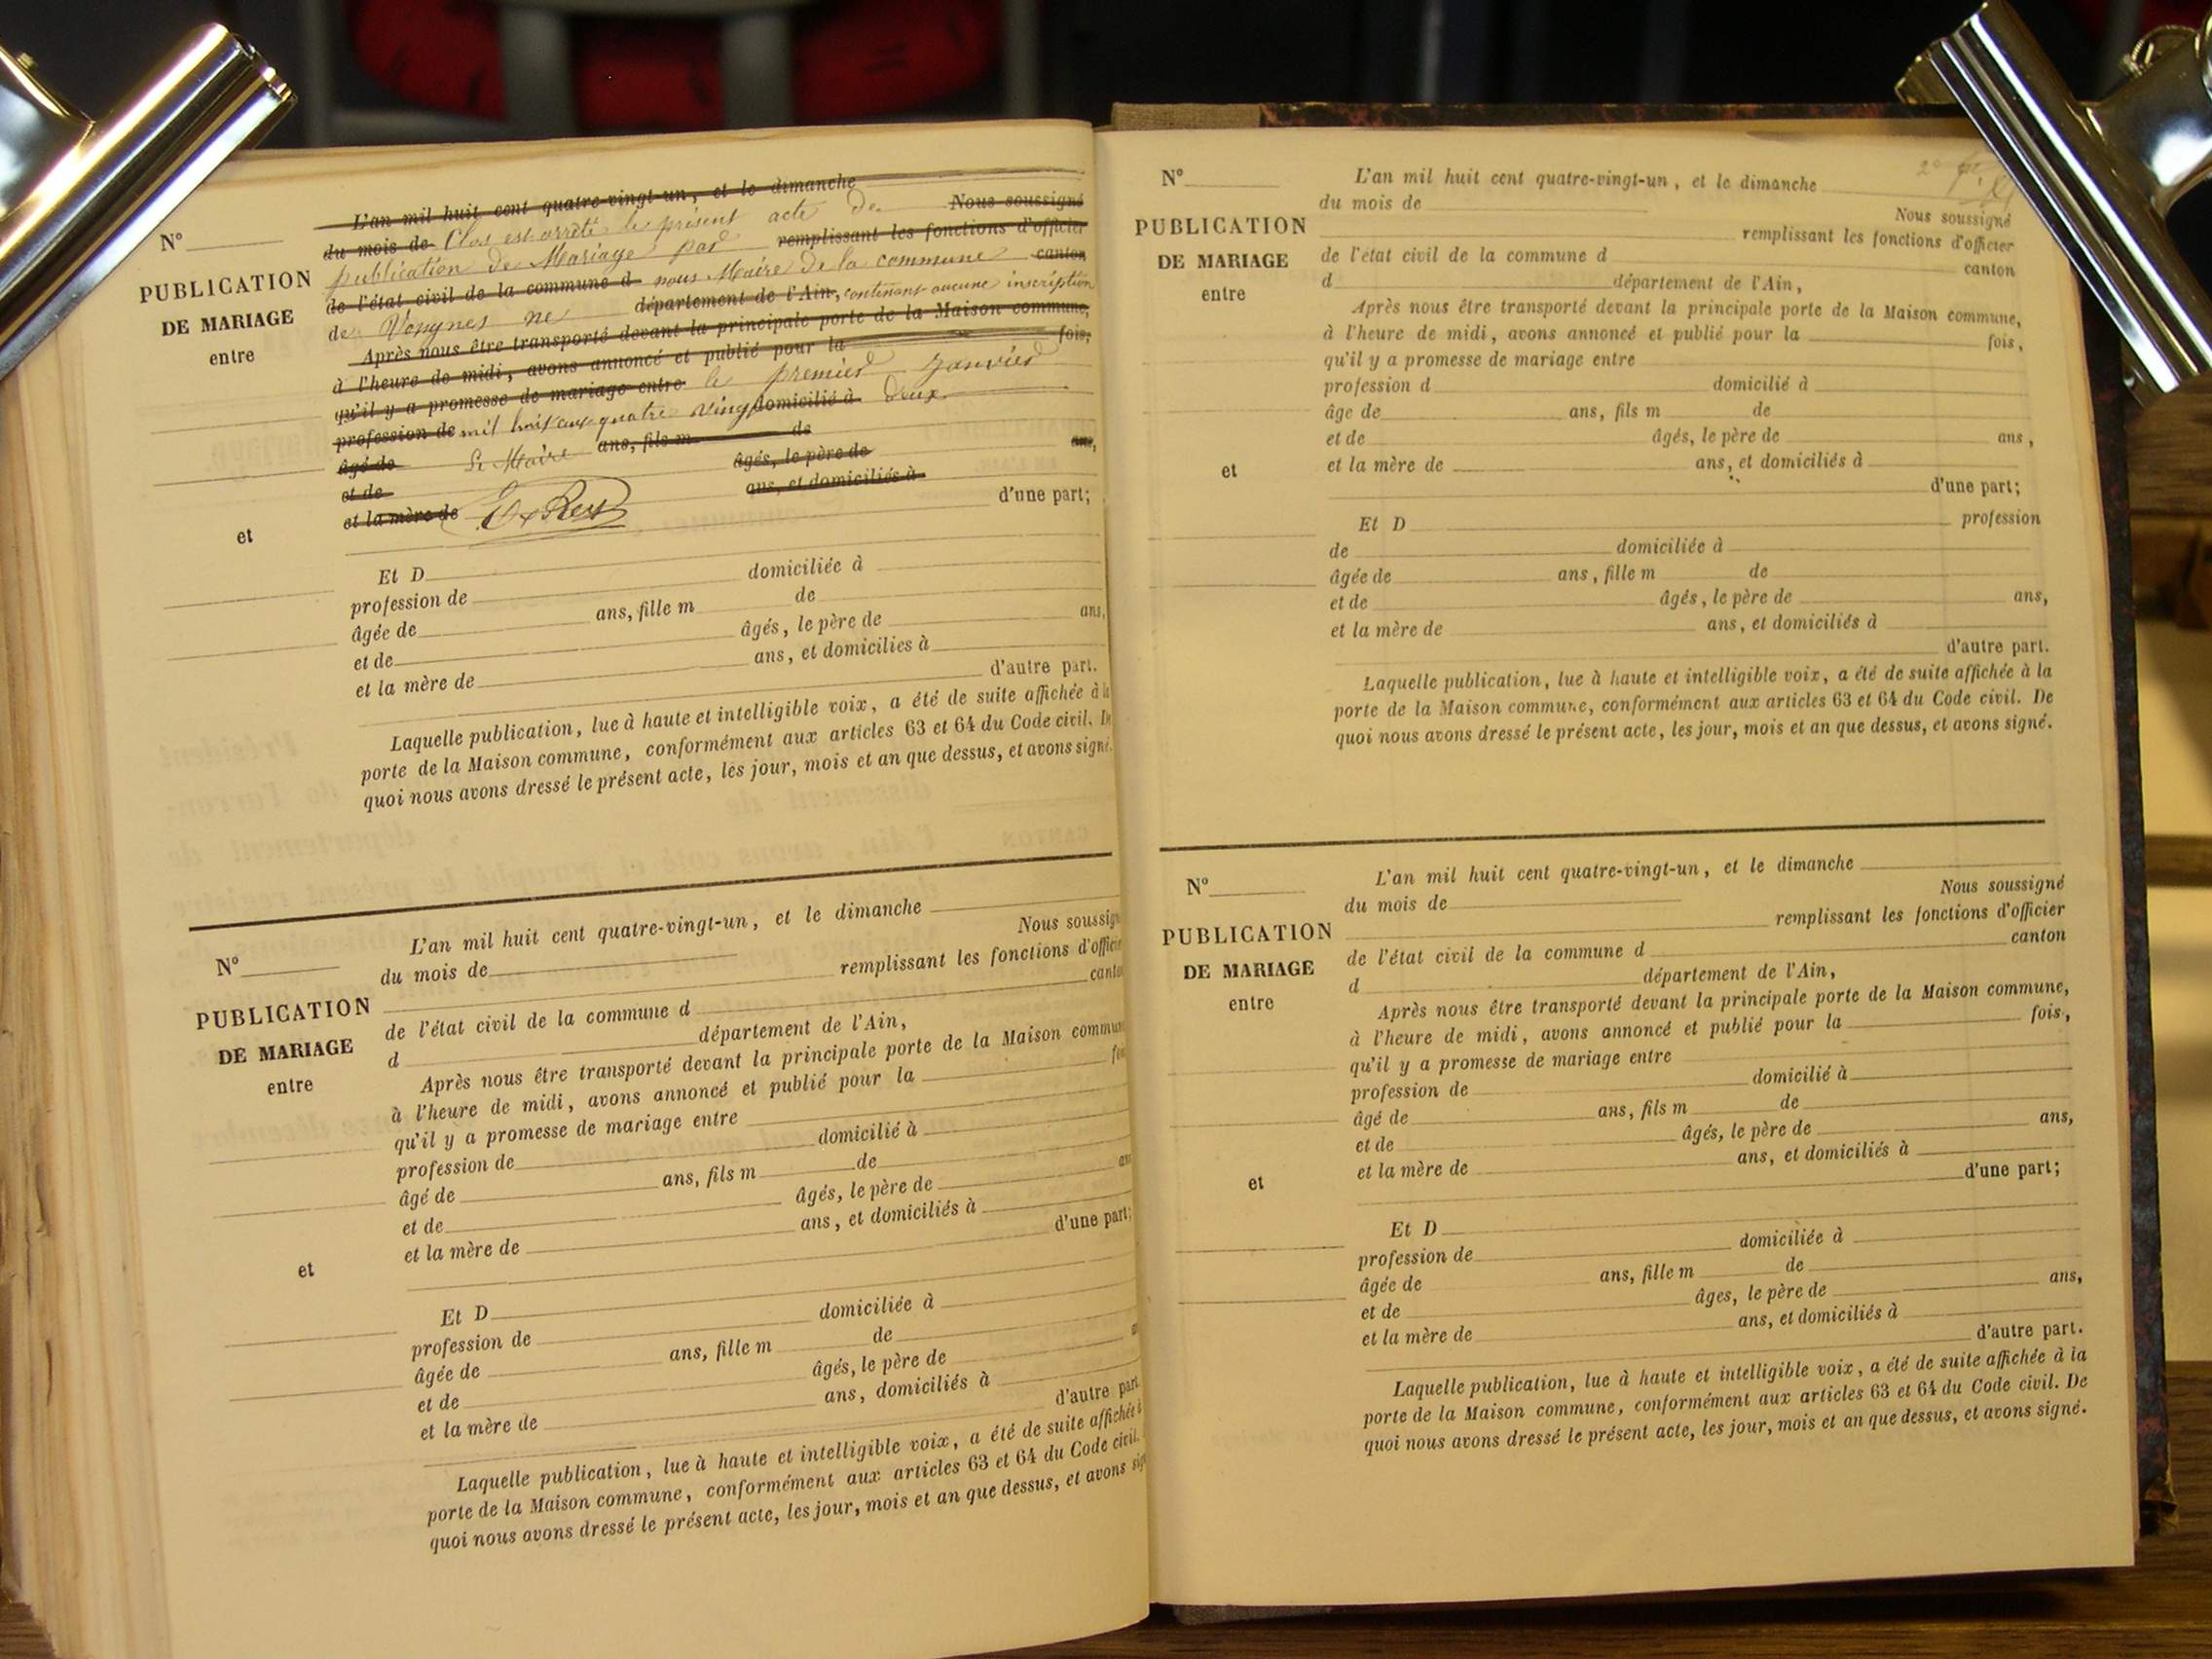 N°
PUBLICATION
DE MARIAGE
entre
et
L'an mil huit cent quatre-vingt-un, et le dimanche
du mois de Clos est arrêté le présent acte de Nous soussigné
publication de Mariage par remplissant les fonctions d'officier
de l'état civil de la commune d nous Maire de la commune canton
de Vongnes ne département de l'Ain, contenant aucune inscription
Après nous être transporté devant la principale porte de la Maison commune,
à l'heure de midi, avons annoncé et publié pour la fois,
qu'il y a promesse de mariage entre le premier Janvier
profession de mil huit cent quatre vingt domicilié à deux
âgé de Le Maire ans, fils m de
et de âgés, le père de ans,
et la mère de ans, et domiciliés à
d'une part;
Et D
profession de domiciliée à
âgée de ans, fille m de
et de âgés, le père de ans,
et la mère de ans, et domicilies à
d'autre part.
Laquelle publication, lue à haute et intelligible voix, a été de suite affichée à la
porte de la Maison commune, conformément aux articles 63 et 64 du Code civil. D
quoi nous avons dressé le présent acte, les jour, mois et an que dessus, et avons signé.
N°
PUBLICATION
DE MARIAGE
entre
et
L'an mil huit cent quatre-vingt-un, et le dimanche
du mois de Nous soussign
remplissant les fonctions d'offici
de l'état civil de la commune d canto
d département de l'Ain,
Après nous être transporté devant la principale porte de la Maison commun
à l'heure de midi, avons annoncé et publié pour la fo
qu'il y a promesse de mariage entre
profession de domicilié à
âgé de ans, fils m de
et de âgés, le père de an
et la mère de ans, et domiciliés à
d'une part;
Et D
profession de domiciliée à
âgée de ans, fille m de
et de âgés, le père de a
et la mère de ans, domiciliés à
d'autre part
Laquelle publication, lue à haute et intelligible voix, a été de suite affichée à
porte de la Maison commune, conformément aux articles 63 et 64 du Code civil.
quoi nous avons dressé le présent acte, les jour, mois et an que dessus, et avons sig
2e
N°
PUBLICATION
DE MARIAGE
entre
et
L'an mil huit cent quatre-vingt-un, et le dimanche
du mois de Nous soussigné
remplissant les fonctions d'officier
de l'état civil de la commune d canton
d département de l'Ain,
Après nous être transporté devant la principale porte de la Maison commune,
à l'heure de midi, avons annoncé et publié pour la fois,
qu'il y a promesse de mariage entre
profession d domicilié à
âge de ans, fils m de
et de âgés, le père de ans,
et la mère de ans, et domiciliés à
d'une part;
Et D profession
de domiciliée à
âgée de ans, fille m de
et de âgés, le père de ans,
et la mère de ans, et domiciliés à
d'autre part.
Laquelle publication, lue à haute et intelligible voix, a été de suite affichée à la
porte de la Maison commune, conformément aux articles 63 et 64 du Code civil. De
quoi nous avons dressé le présent acte, les jour, mois et an que dessus, et avons signé.
N°
PUBLICATION
DE MARIAGE
entre
et
L'an mil huit cent quatre-vingt-un, et le dimanche
du mois de Nous soussigné
remplissant les fonctions d'officier
de l'état civil de la commune d canton
d département de l'Ain,
Après nous être transporté devant la principale porte de la Maison commune,
à l'heure de midi, avons annoncé et publié pour la fois,
qu'il y a promesse de mariage entre
profession de domicilié à
âgé de ans, fils m de
et de âgés, le père de ans,
et la mère de ans, et domiciliés à
d'une part;
Et D
profession de domiciliée à
âgée de ans, fille m de
et de âges, le père de ans,
et la mère de ans, et domiciliés à
d'autre part.
Laquelle publication, lue à haute et intelligible voix, a été de suite affichée à la
porte de la Maison commune, conformément aux articles 63 et 64 du Code civil. De
quoi nous avons dressé le présent acte, les jour, mois et an que dessus, et avons signé.